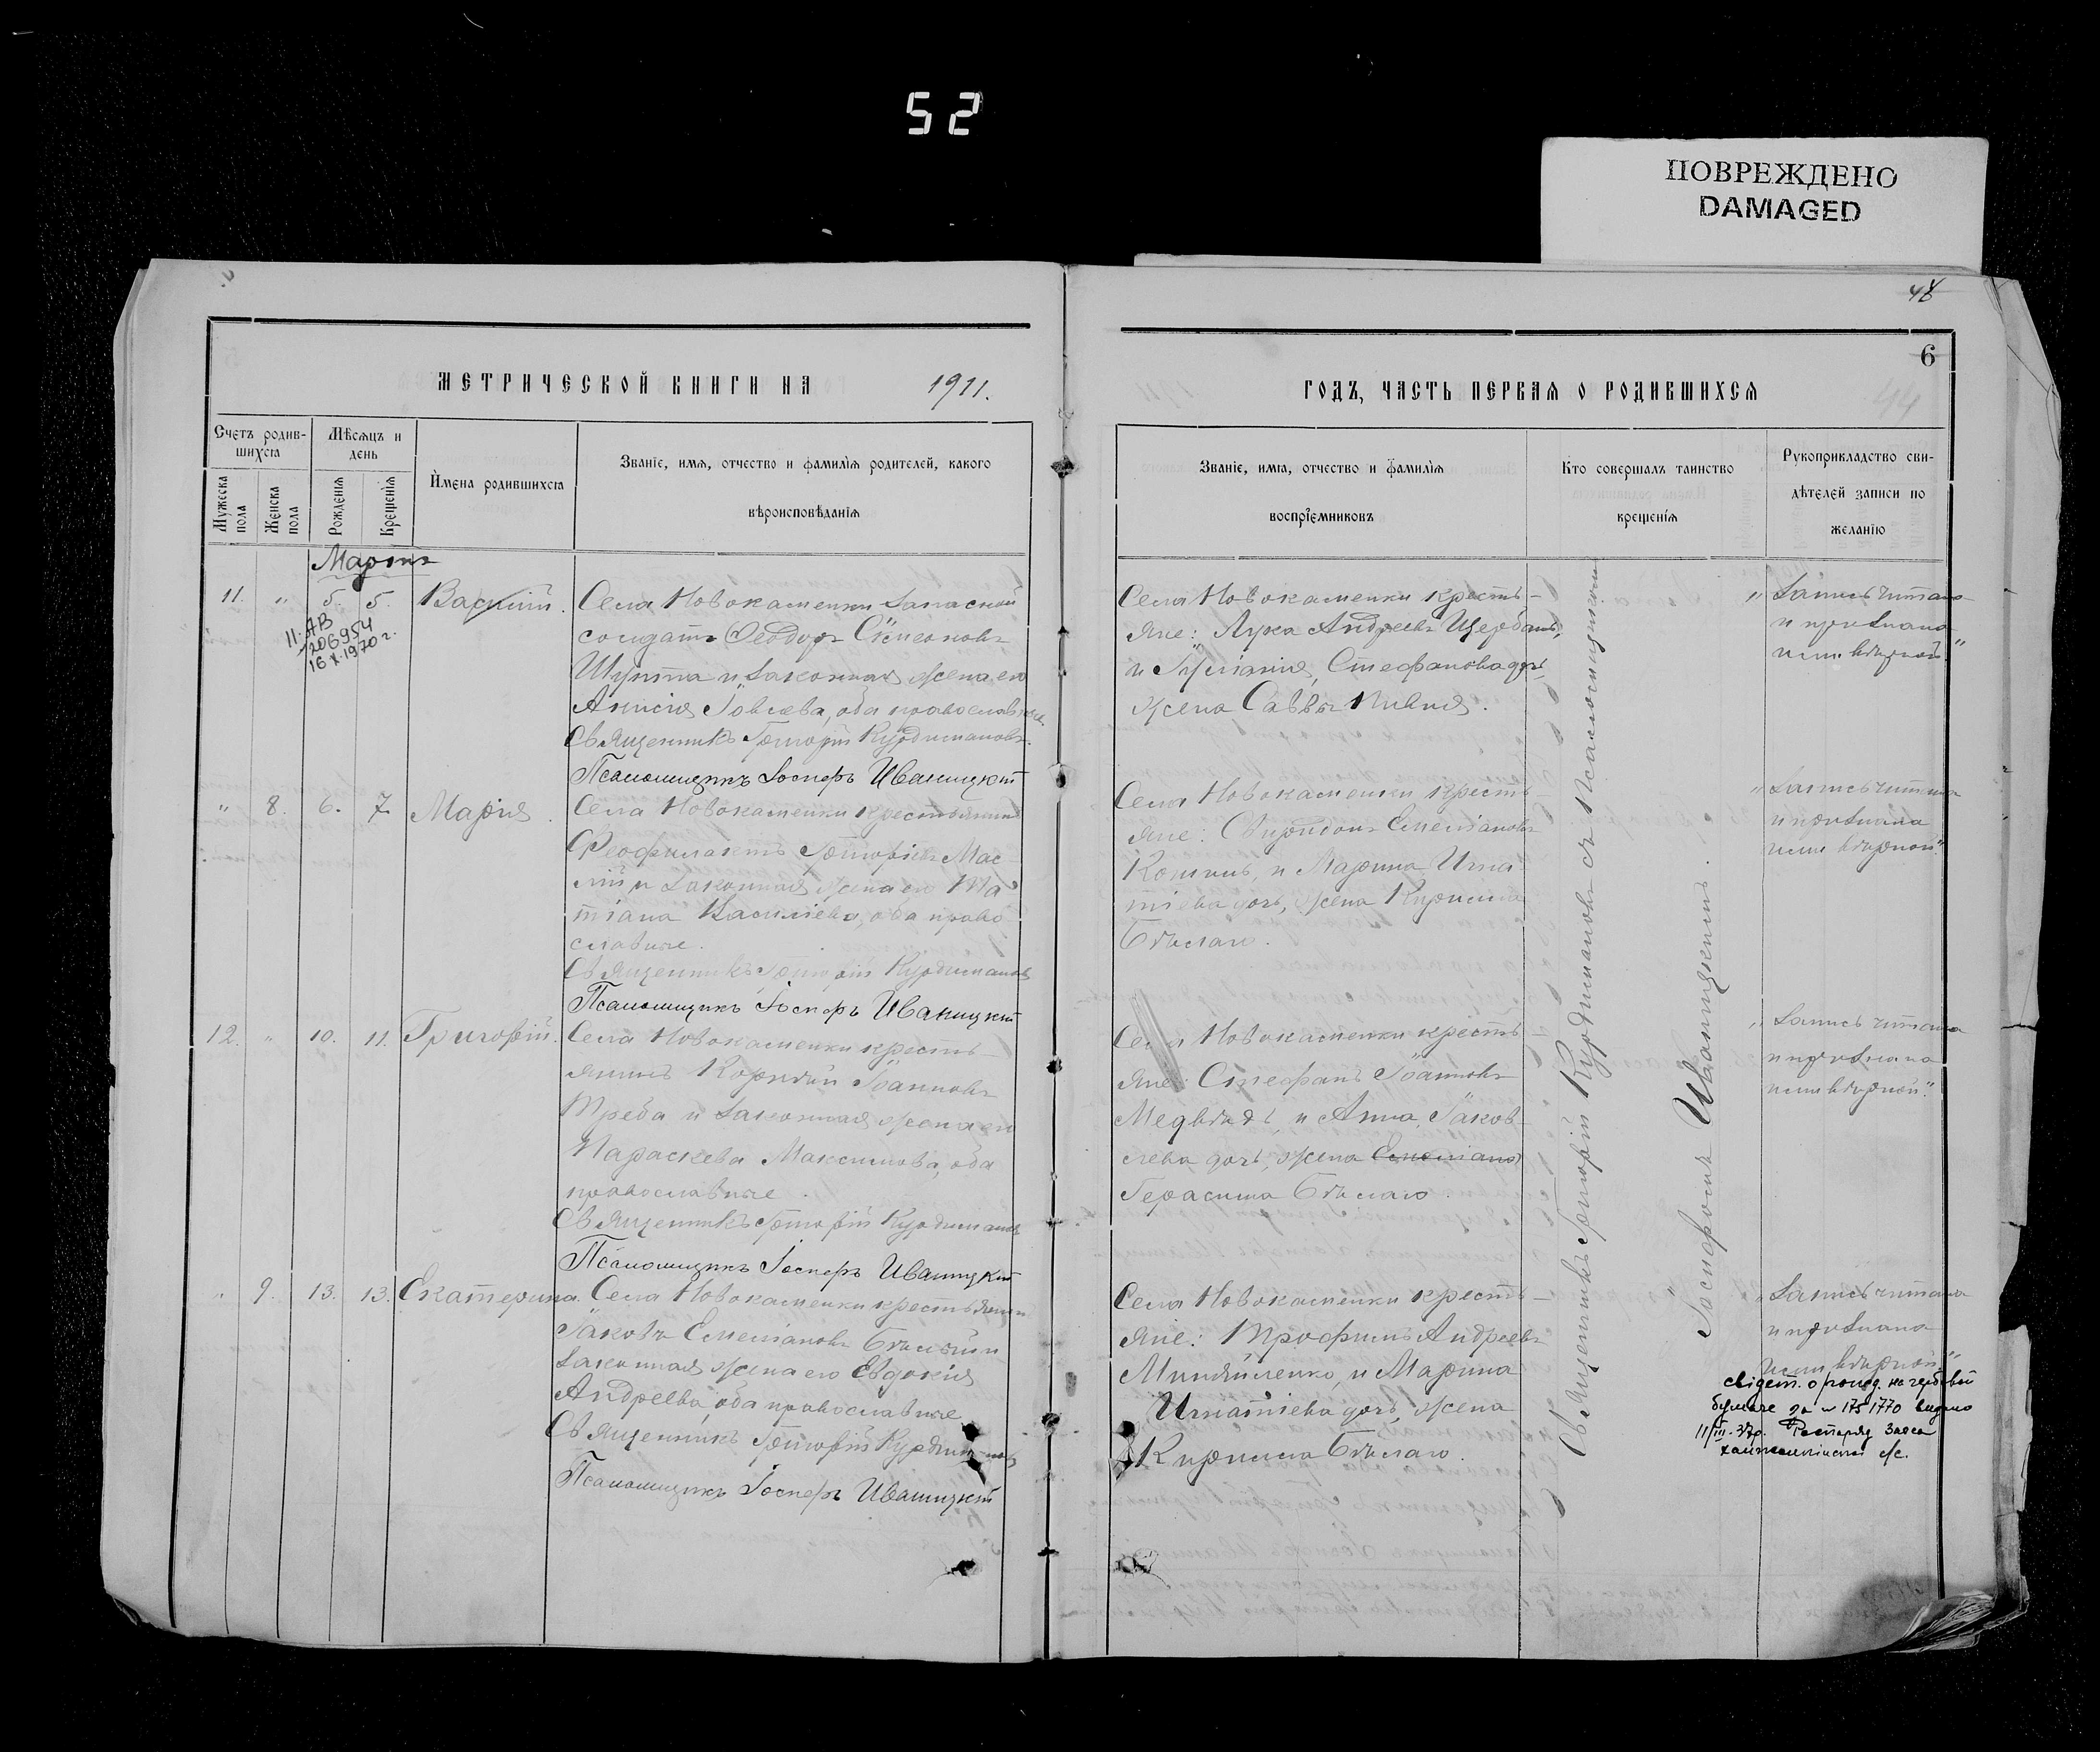 52
ПОВРЕЖДЕНО
DAMAGED
48
6
44
МЕТРИЧЕСКОЙ КНИГИ НА 1911.
ГОДЪ, ЧАСТЬ ПЕРВАЯ О РОДИВШИХСЯ
Счетъ родив-
шихся
Мужеска
пола
Женска
пола
Мѣсяцъ и
день
Рожденія
Крещенія
Имена родившихся
Званіе, имя, отчество и фамилія родителей, какого
вѣроисповѣданія
Званіе, имя, отчество и фамилія
воспріемниковъ
Кто совершалъ таинство
крещенія
Рукоприкладство сви-
дѣтелей записи по
желанію
Мартъ
11. " 5. 5. Василій.
11-АВ
206954
16 X 1970 г.
Села Новокаменки запасной
солдатъ Ѳеодоръ Сѵмеоновъ
Шупта и законная жена его
Анисія Іовлева, оба православные.
Священникъ Григорій Курдимановъ.
Псаломщикъ Іосифъ Иваницкій
Села Новокаменки кресть-
яне: Лука Андреевъ Щербань,
и Іуліанія, Стефанова дочь,
жена Саввы Пивня.
"Запись читана
и признана
ими вѣрной"
" 8. 6. 7. Марія.
Села Новокаменки крестьянинъ
Ѳеофилактъ Григоріевъ Мас-
лій и законная жена его Та-
тіана Василіева, оба право-
славные.
Священникъ Григорій Курдимановъ
Псаломщикъ Іосифъ Иваницкій
Села Новокаменки кресть-
яне: Спиридонъ Емеліановъ
и Марина Игна-
тіева дочь, жена Кирилла
Бѣлаго.
"Запись читана
и признана
ими вѣрной."
12. " 10. 11. Григорій.
Села Новокаменки кресть-
янинъ Корнілій Іоанновъ
Треба и законная жена его
Параскева Максимова, оба
православные.
Священникъ Григорій Курдимановъ
Псаломщикъ Іосифъ Иваницкій
Села Новокаменки кресть-
яне: Стефанъ Іоанновъ
Медвѣдь, и Анна, Іаков-
лева дочь, жена Емеліана
Герасима Бѣлаго.
"Запись читана
и признана
ими вѣрной."
" 9. 13. 13. Екатерина.
Села Новокаменки крестьянинъ
Іаковъ Емеліановъ Бѣлый и
законная жена его Евдокія
Андреева, оба православные
Священникъ Григорій Курдимановъ
Псаломщикъ Іосифъ Иваницкій
Села Новокаменки кресть-
яне: Трофимъ Андреевъ
и Марина
Игнатіева дочь, жена
Кирилла Бѣлаго.
"Запись читана
и признана
ими вѣрной."
свідет. о рожд. на гербовой
бумаге за № 1751770 видано
11/III-37р. загса
Священникъ Григорій Курдимановъ съ псаломщикомъ
Іосифомъ Иваницкимъ.